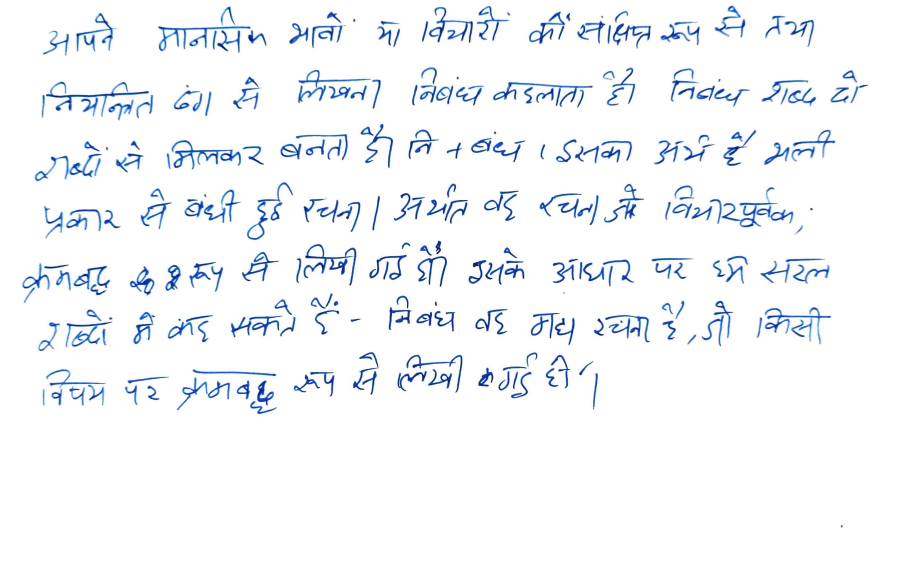 आपने मानसिक भावों या विचारों कीं संक्षिप्त रूप से तथा
नियन्त्रित ढंग से लिखना निबंध कहलाता है। निबंध शब्द दो
शब्दों से मिलकर बनता है। नि + बंध । इसका अर्थ है भली
प्रकार से बंधी हुई रचना। अर्थात वह रचना जो विचारपूर्वक,
क्रमबद्ध रूप से लिखी गई हो। इसके आधार पर हम सरल
शब्दों में कह सकते हैं - निबंध वह गद्य रचना है, जो किसी
विषय पर क्रमबद्ध रूप से लिखी गई हो।